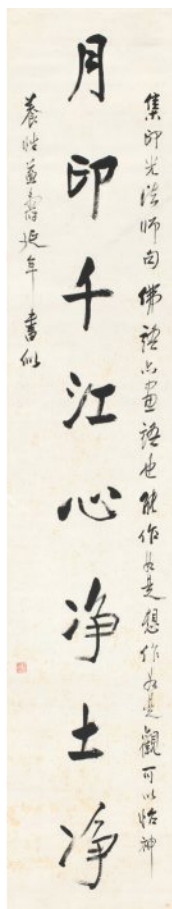 集印光法师句佛語亦畫語也能作如是想作如是觀可以怡神
月印千江心净土净
養性益壽延年 書似